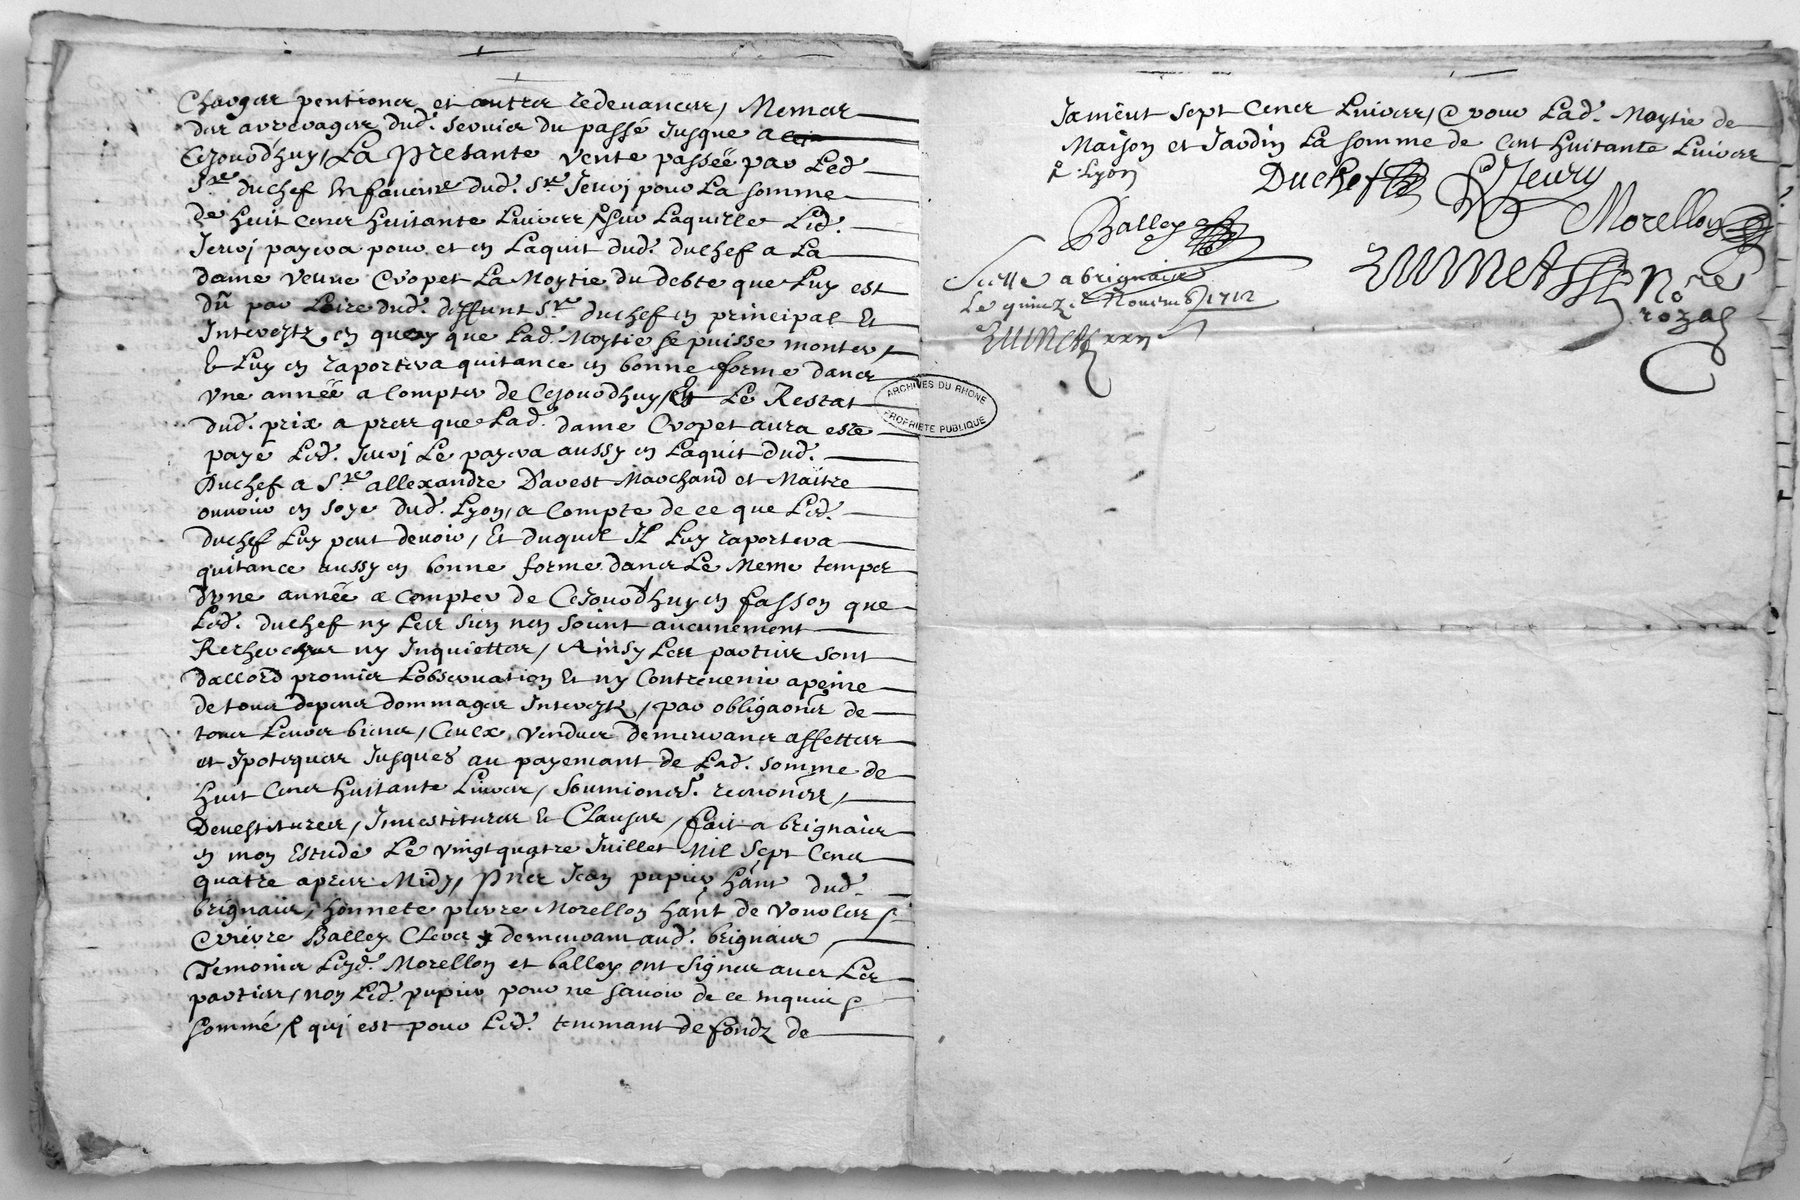 Charges pentiones et autres redevances, Memes
des arrerages dud. servier du passé Jusque a
Cejourdhuy, La presante vente passée par Led
Sr. duchef En faveur dud. Sr. Jeury pour La somme
de huit cens huitante Livres, sur Laquelle Led.
Jeury payera pour et en Laquit dud. duchef a La
dame veuve Cropet La Moytie du debte que Luy est
dû par Loire dud. deffunt Sr. duchef en principal Et
Interestz, en quoy que Lad. Moytie se puisse monter,
& Luy en raportera quitance en bonne forme dans
Une année a Compter de Cejourdhuy, Et Le Restat
dud. prix a pres que Lad. dame Cropet aura este
payé Led. Jeury Le payera aussy en Laquit dud.
Duchef a Sr. allexandre Davest Marchand et Maître
ouvrier en soye dud. Lyon, a Compte de ce que Led.
duchef Luy peut devoir, Et duquel Il Luy raportera
quitance aussy en bonne forme dans Le Meme temps
dune année a Compter de Cejourdhuy en fasson que
Led. duchef ny Les siens nen soint aucunement
Recherches ny Inquiettes, Ainsy Les parties sont
daccord promis Lobservation Et ny Contrevenir apeine
de tous depens dommages Interestz, par obligaons de
tous Leurs biens, Ceux vendues demeurans affettes
et ypoteques Jusques au payemant de Lad. somme de
huit Cens huitante Livres, Soumions. renons,
Devestitures, Investitures Et Clauses, fait a brignais
en mon Estude Le vingt quatre Juillet Mil Sept Cens
quatre apres Midy, Pnts Jean pupier hant dud.
brignais, honnete pierre Morellon hant de Vourles
Balley Clerc demeurant aud. brignais
Temoins Lesd. Morellon et balley ont signes avec Les
parties, non Led. pupier pour ne savoir de ce enquis
sommé, qui est pour Led. tenemant de fondz de
Jament sept Cens Livres, & pour Lad. Moytie de
Maison et Jardin La somme de Cent huitante Livres
Lyon
Duchef Jeury
Balley Morellon
Scelle a brignais
Le quinze Novemb 1712
Nore
rozal
ARCHIVES DU RHONE
PROPRIETE PUBLIQUE